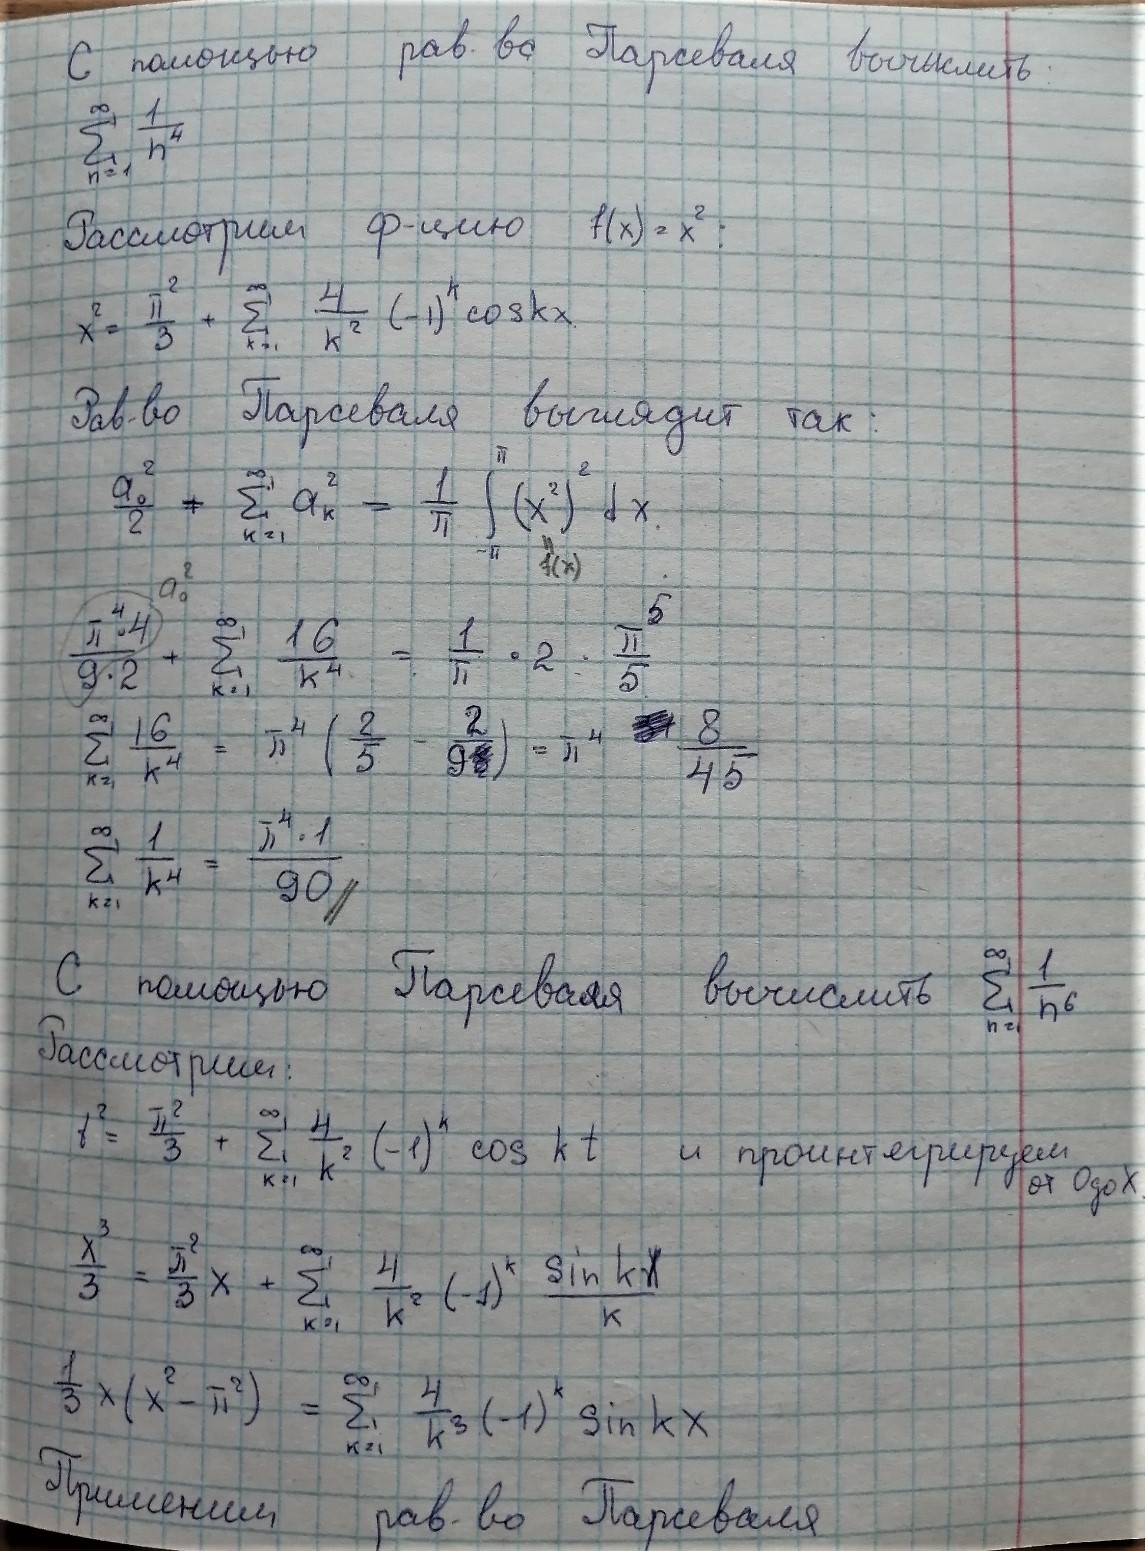 С помощью рав-во Парсеваля вычислить:
∞ ∑ n=1 1/n⁴
Рассмотрим ф-цию f(x) = x²:
x² = π²/3 + ∞ ∑ k=1 4/k² (-1)^k cos kx.
Рав-во Парсеваля выглядит так:
a₀²/2 + ∞ ∑ k=1 a_k² = 1/π ∫_{-π}^{π} (x²)² dx.
f(x)
a₀²
π⁴·4/9·2 + ∞ ∑ k=1 16/k⁴ = 1/π · 2 · π⁵/5
∞ ∑ k=1 16/k⁴ = π⁴ (2/5 - 2/9) = π⁴ 8/45
∞ ∑ k=1 1/k⁴ = π⁴·1/90 //
С помощью Парсеваля вычислить ∞ ∑ n=1 1/n⁶
Рассмотрим:
t² = π²/3 + ∞ ∑ k=1 4/k² (-1)^k cos kt и проинтегрируем
от 0 до x.
x³/3 = π²/3 x + ∞ ∑ k=1 4/k² (-1)^k sin kx/k
1/3 x(x² - π²) = ∞ ∑ k=1 4/k³ (-1)^k sin kx
Применим рав-во Парсеваля